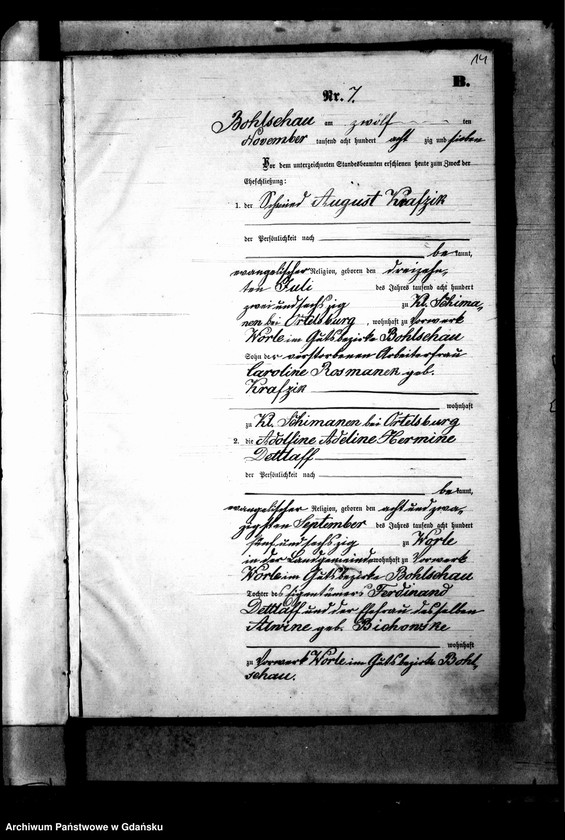 14
B.
Nr. 7.
Bohlschau am zwölf ten
November tausend acht hundert acht zig und sieben
Vor dem unterzeichneten Standesbeamten erschienen heute zum Zweck der
Eheschließung:
1. der Schmied August Krafzik
der Persönlichkeit nach
be kannt,
evangelischer Religion, geboren den dreizehn-
ten Juli des Jahres tausend acht hundert
zweiundsechszig zu Kl. Schima-
nen bei Ortelsburg, wohnhaft zu Vorwerk
Worle im Gutsbezirke Bohlschau
Sohn der verstorbenen Arbeiterfrau
Caroline Rosmanek geb.
Krafzik
wohnhaft
zu Kl. Schimanen bei Ortelsburg
2. die Adolfine Adeline Hermine
Dettlaff
der Persönlichkeit nach
be kannt,
evangelischer Religion, geboren den acht und zwan-
zigsten September des Jahres tausend acht hundert
fünf und sechszig zu Worle
in der Landgemeinde wohnhaft zu Vorwerk
Worle im Gutsbezirke Bohlschau
Tochter des Eigentümers Ferdinand
Dettlaff und der Ehefrau desselben
Alwine geb. Bichowske
wohnhaft
zu Vorwerk Worle im Gutsbezirke Bohl-
schau.
Archiwum Państwowe w Gdańsku